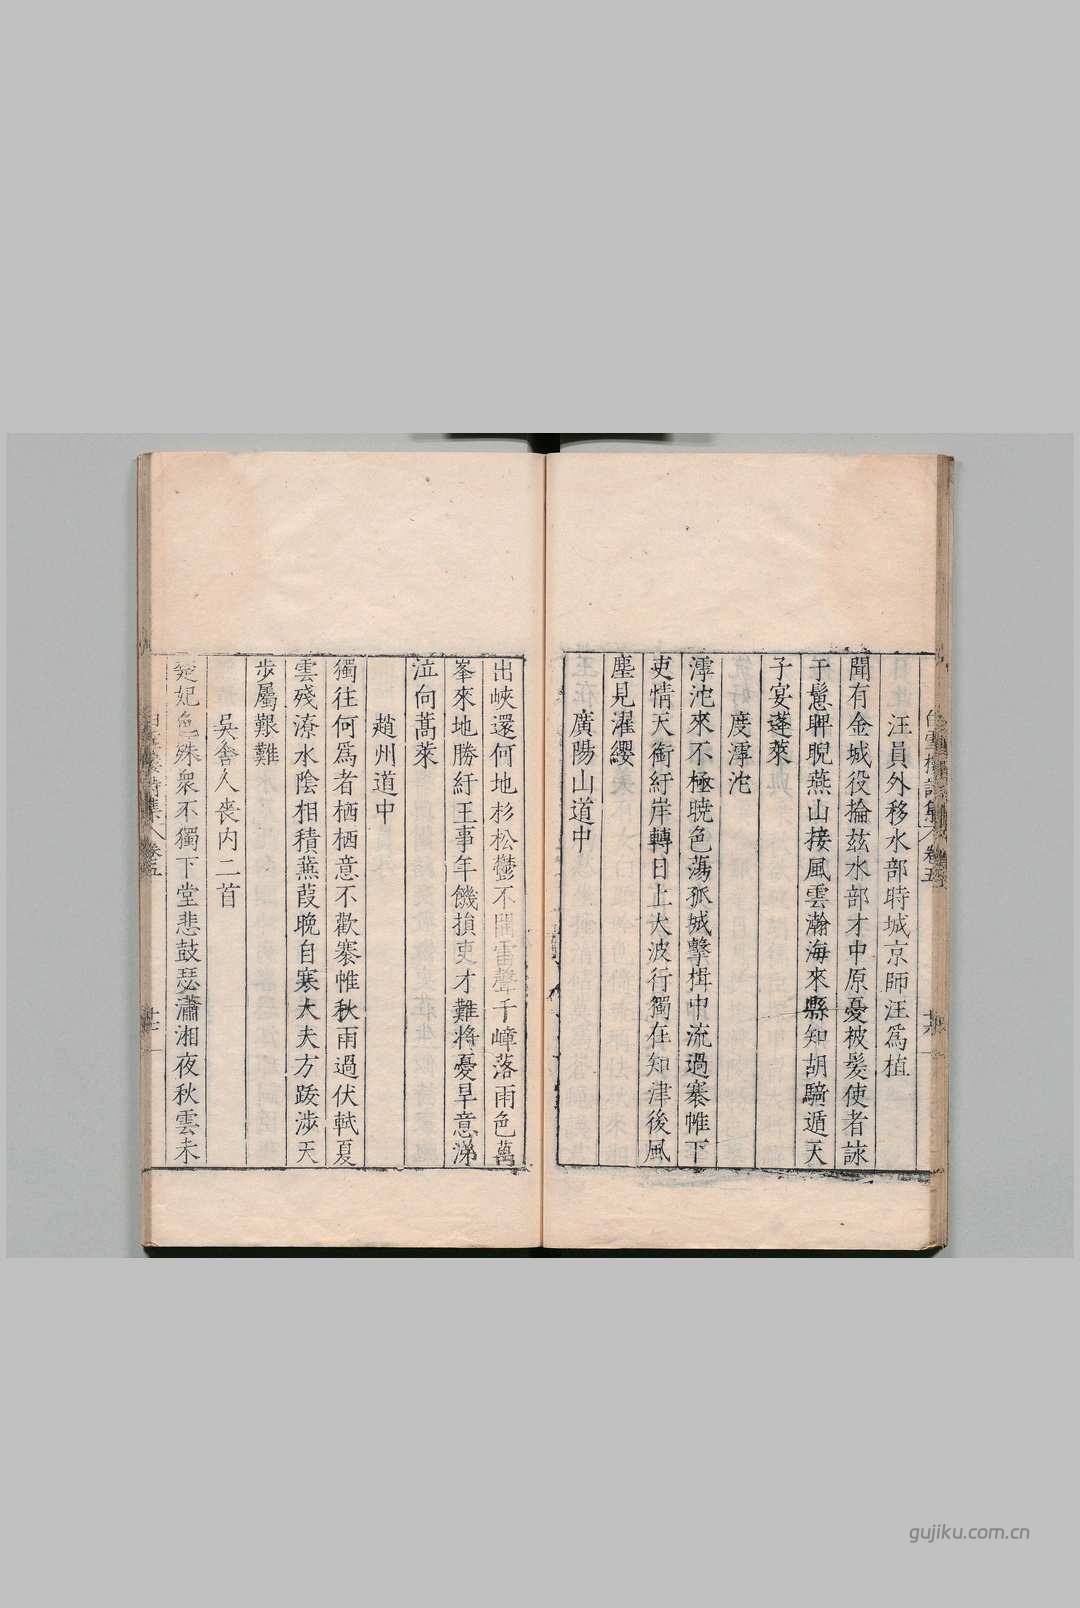 汪員外移水部時城京師汪爲植
聞有金城役掄兹水部才中原憂被髮使者詠
于鬯睥睨燕山接風雲瀚海來縣知胡騎遁天
子宴蓬萊
度滹沱
滹沱來不極曉色蕩孤城擊楫中流過褰帷下
吏情天衢紆岸轉日上大波行獨在知津後風
塵見濯纓
廣陽山道中
出峽還何地杉松鬱不開雷聲千嶂落雨色萬
峯來地勝紆王事年饑損吏才難將憂旱意涕
泣向蒿萊
趙州道中
獨往何爲者栖栖意不歡褰帷秋雨過伏軾夏
雲殘潦水陰相積蒹葭晚自寒大夫方跋涉天
步屬艱難
吳舍人喪內二首
楚妃色殊衆不獨下堂悲鼓瑟瀟湘夜秋雲未
白雪樓詩集 卷五
gujiku.com.cn